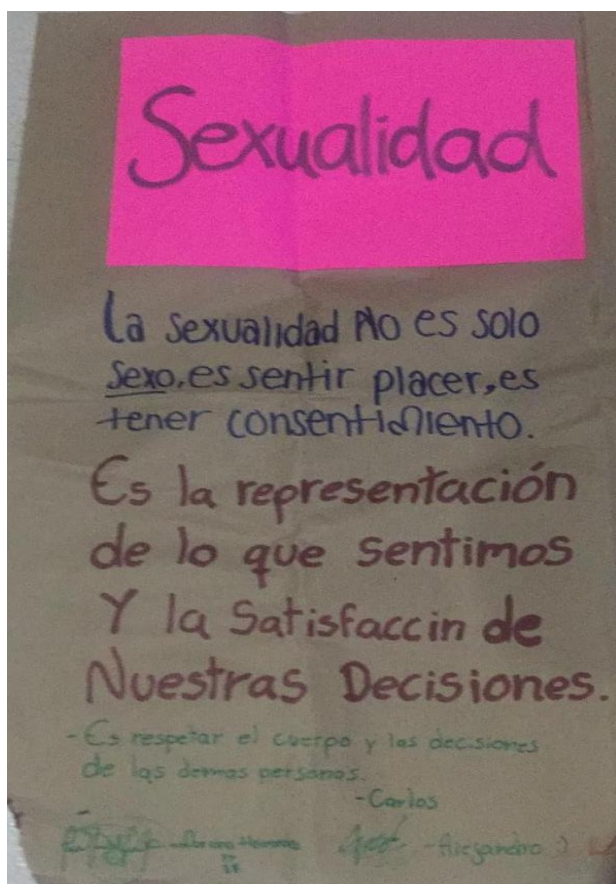 Sexualidad
La sexualidad No es solo
sexo, es sentir placer, es
tener consentimiento.
Es la representación
de lo que sentimos
Y la Satisfaccin de
Nuestras Decisiones.
-Es respetar el cuerpo y las decisiones
de las demas personas.
-Carlos
-Alejandro